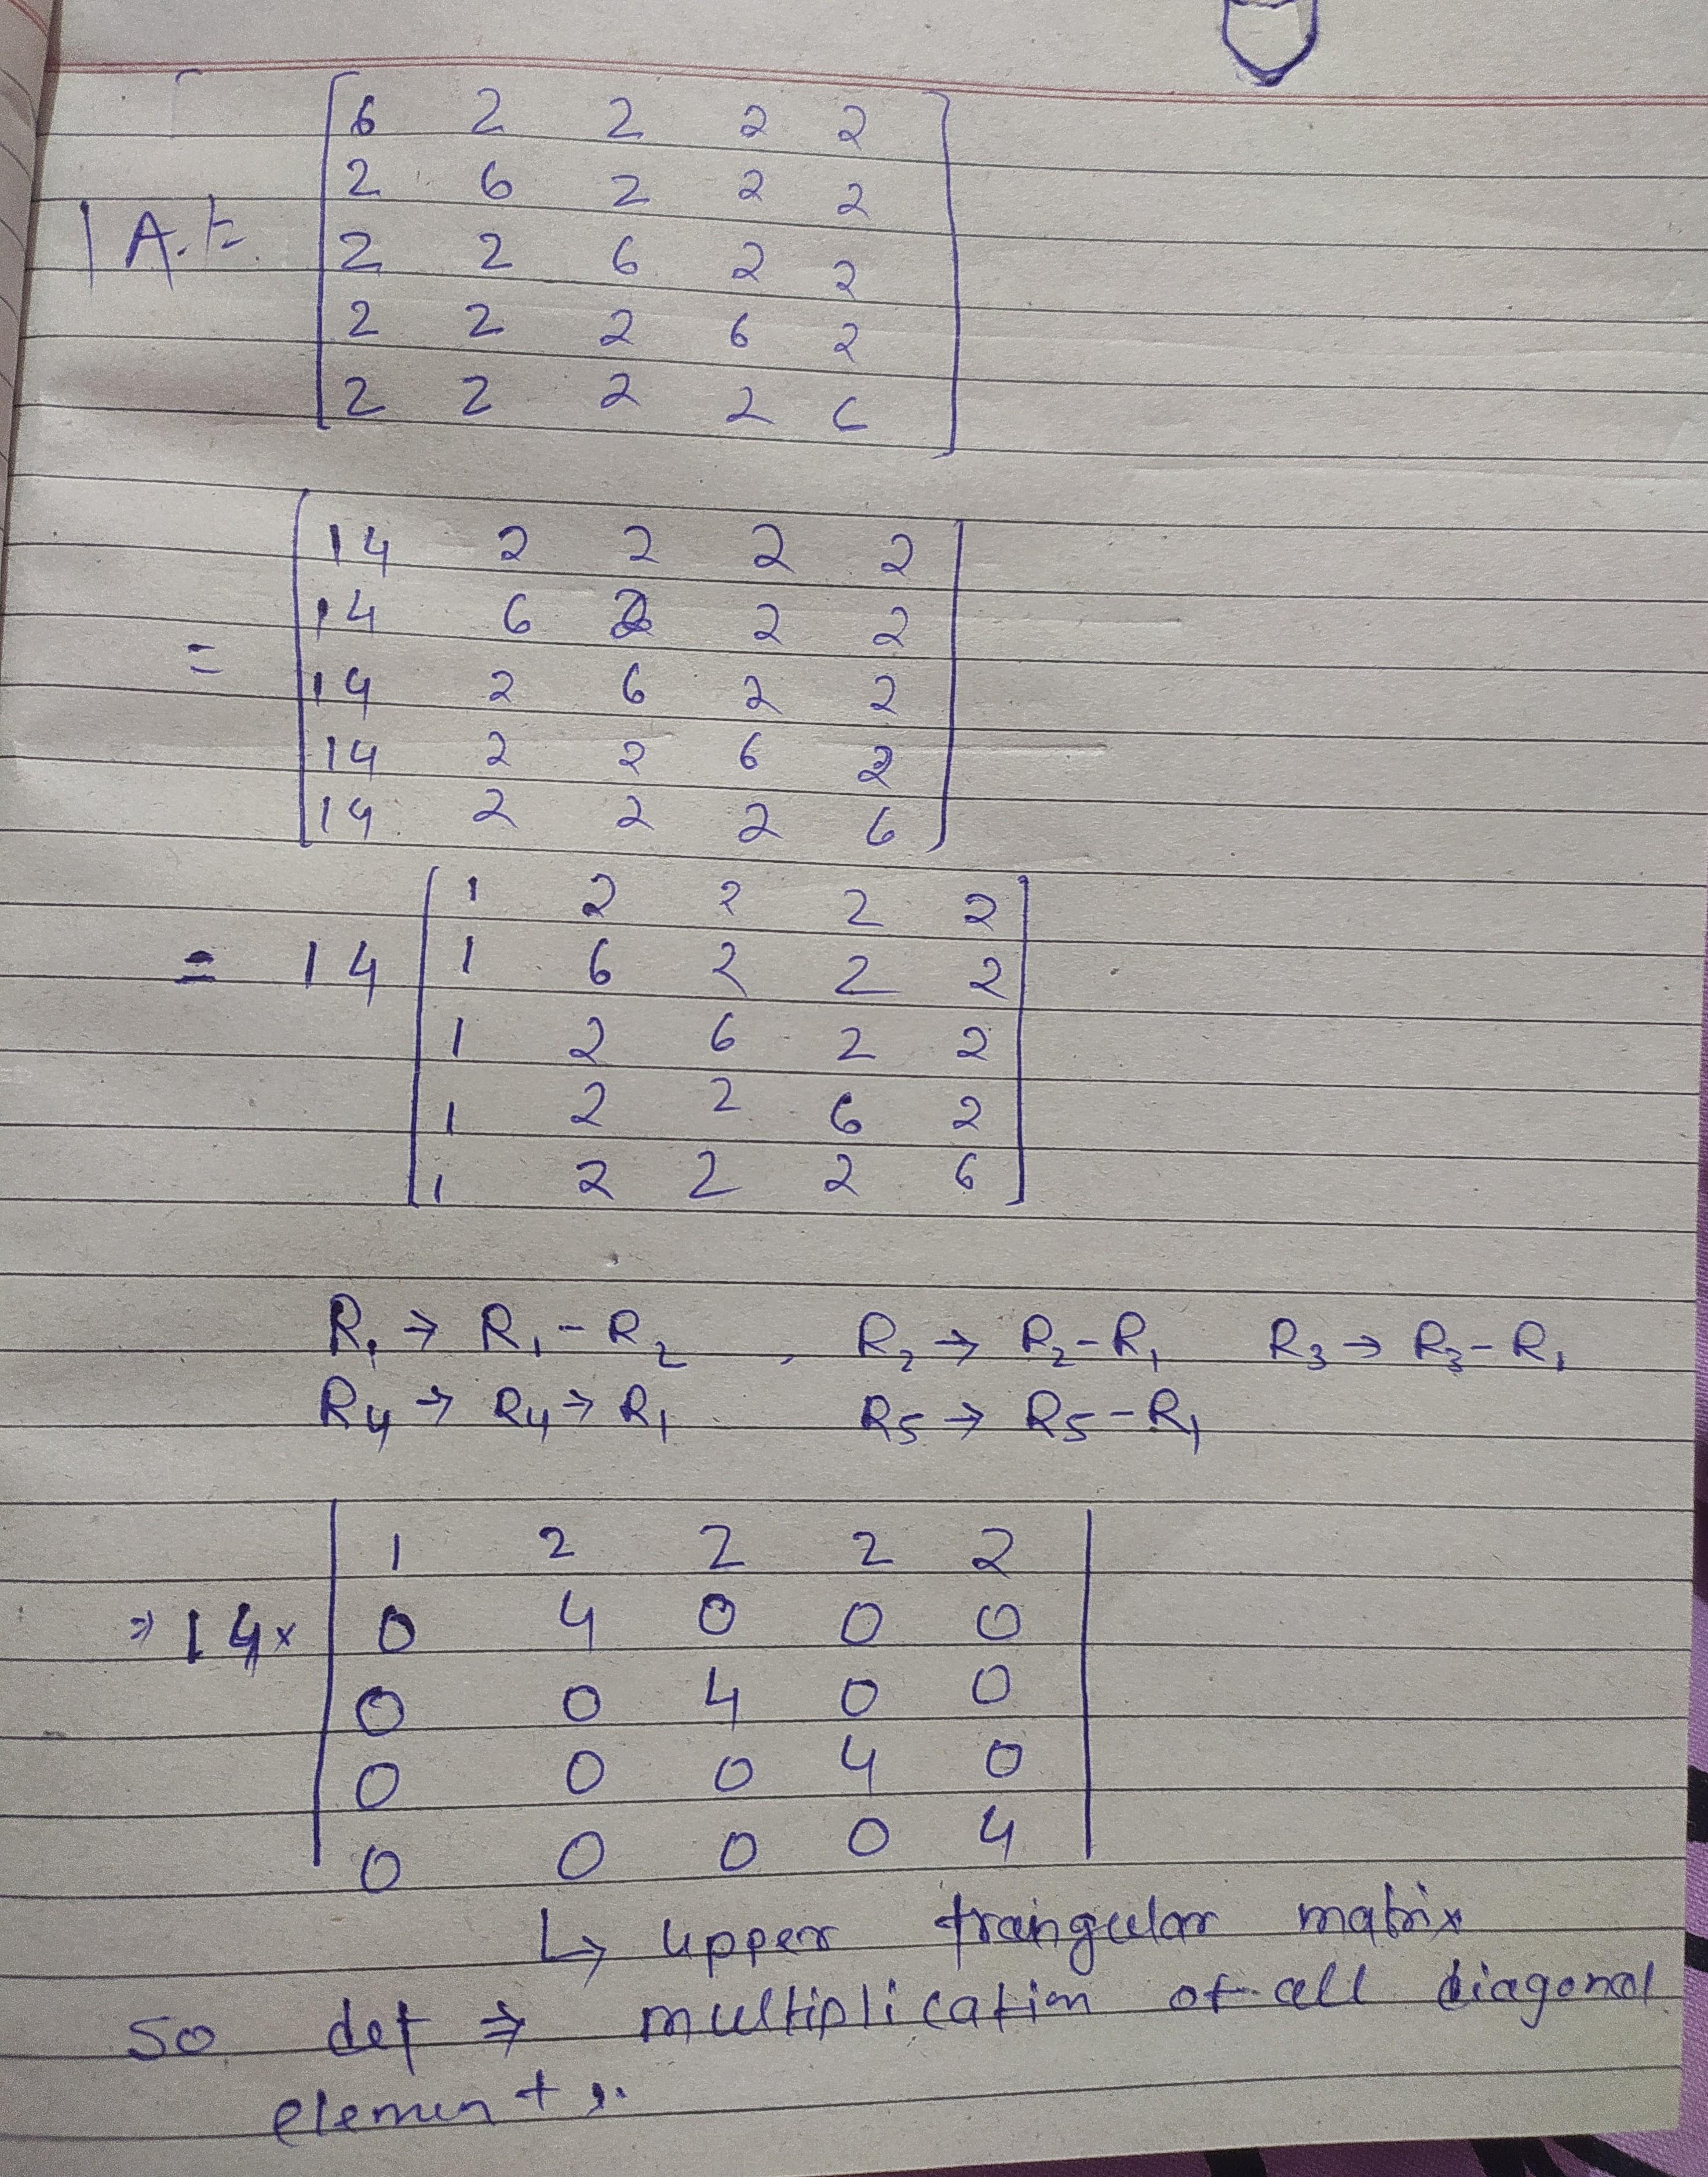 6 2 2 2 2
2 6 2 2 2
|A.|= 2 2 6 2 2
2 2 2 6 2
2 2 2 2 6
14 2 2 2 2
14 6 2 2 2
= 14 2 6 2 2
14 2 2 6 2
14 2 2 2 6
1 2 2 2 2
= 14 1 6 2 2 2
1 2 6 2 2
1 2 2 6 2
1 2 2 2 6
R₁ → R₁ - R₂ , R₂ → R₂ - R₁ R₃ → R₃ - R₁
R₄ → R₄ → R₁ R₅ → R₅ - R₁
1 2 2 2 2
⇒ 14× 0 4 0 0 0
0 0 4 0 0
0 0 0 4 0
0 0 0 0 4
↳ upper trangular matrix
so det ⇒ multiplication of all diagonal
element s.